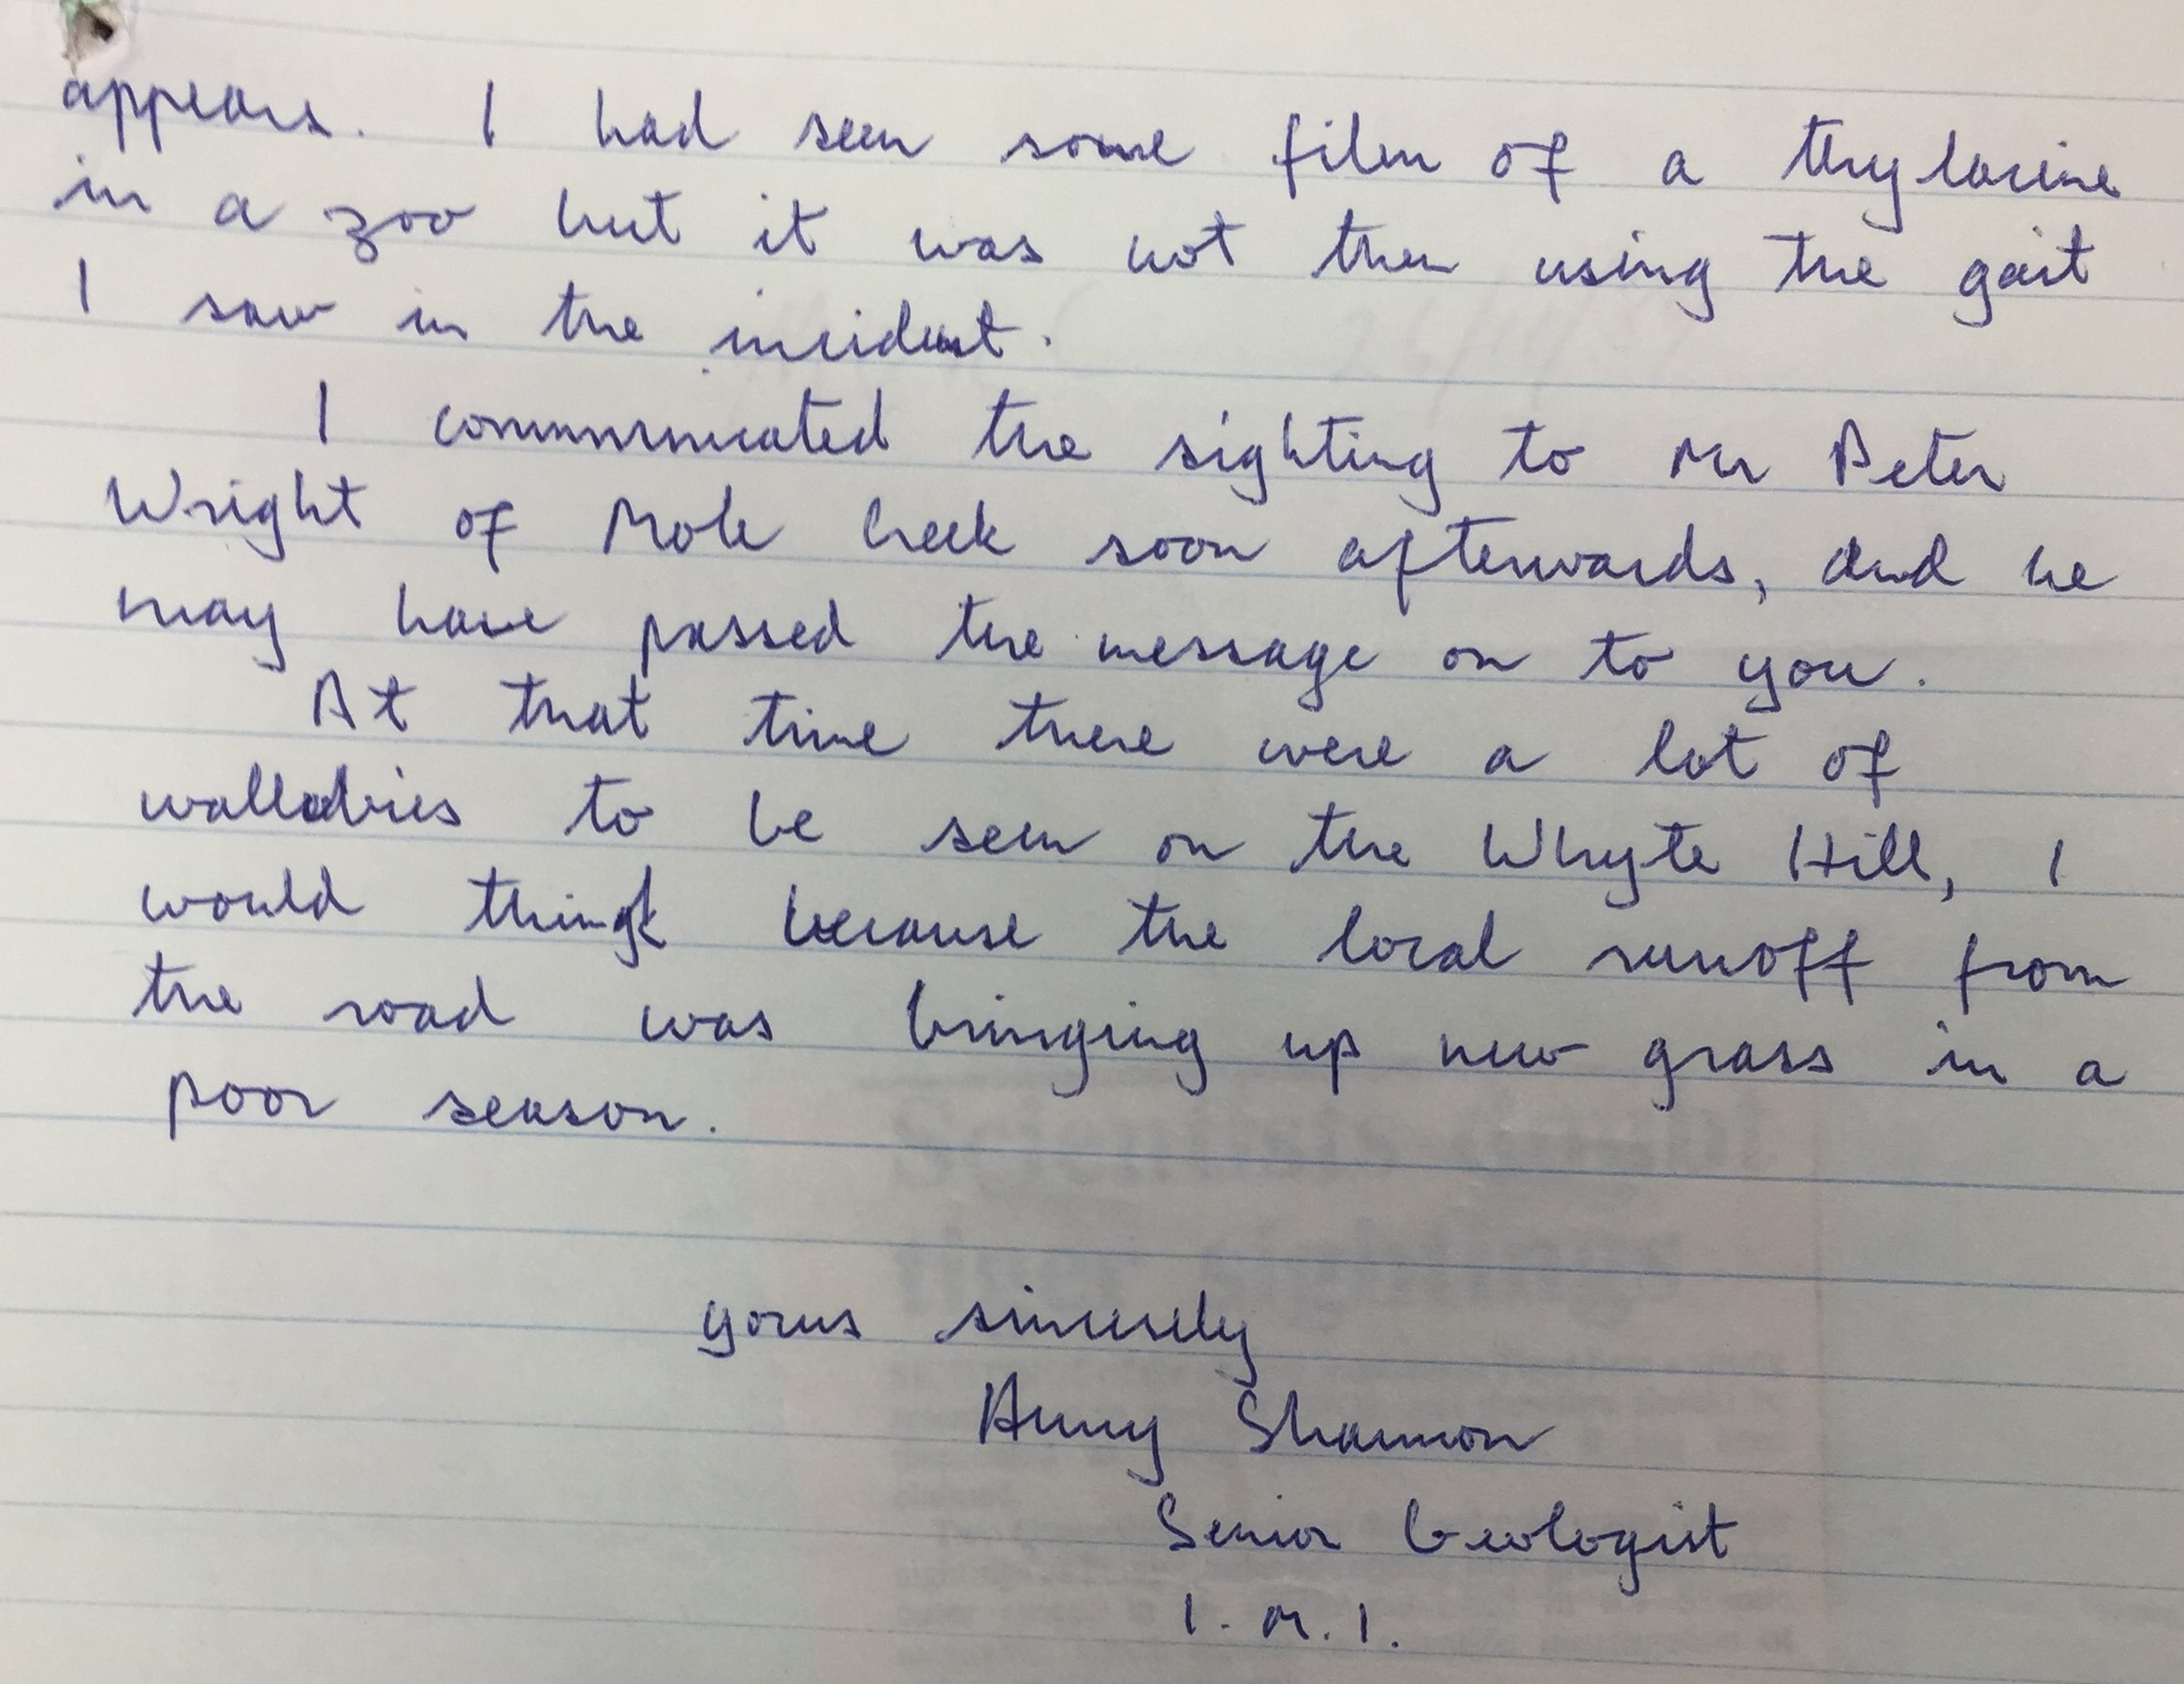 appears. I had seen some film of a thylacine
in a zoo but it was not then using the gait
I saw in the incident.
I communicated the sighting to Mr Peter
Wright of Mole Creek soon afterwards, and he
may have passed the message on to you.
At that time there were a lot of
wallabies to be seen on the Whyte Hill, I
would think because the local runoff from
the road was bringing up new grass in a
poor season.
Scientists
tiger sightings
yours sincerely
Shannon
Senior Geologist
I.M.I.